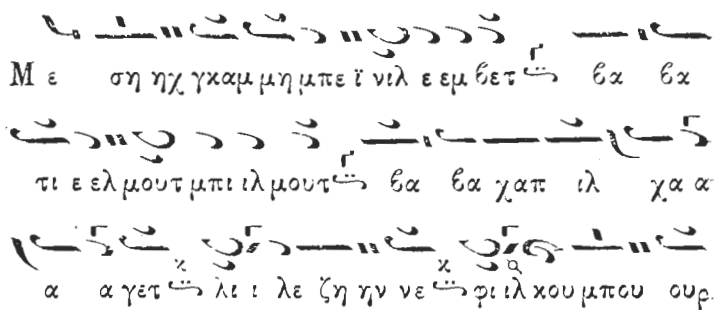 Μ ε ση ηχ γκαμ μη μπε ϊ νιλ ε εμ βετ βα βα
τι ε ελ μουτ μπι ιλ μουτ βα βα χαπ ιλ χα α
α α γετ λι ι λε ζη ην νε φι ιλ κου μπου ουρ.